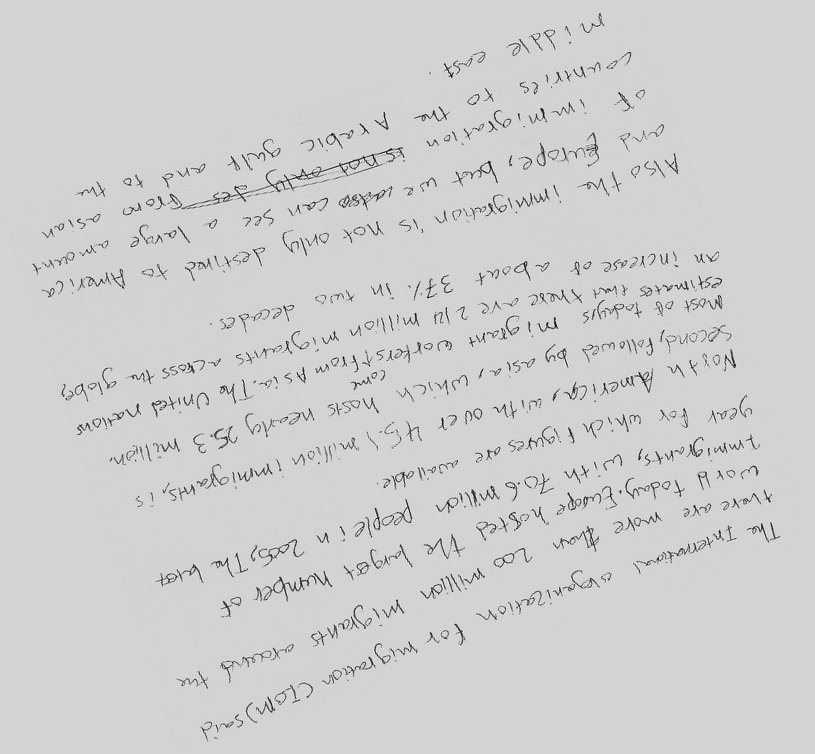 The International organization for migration (IOM) said
there are more than 200 million migrants around the
world today. Europe hosted the largest number of
immigrants, with 70.6 million people in 2005, The latest
year for which figures are available.
North America, with over 45.1 million immigrants, is
second, followed by asia, which hosts nearly 25.3 million.
most of todays migrant workers come from Asia. The United nations
estimates that there are 214 million migrants across the globe,
an increase of about 37% in two decades.
Also the immigration is not only destined to America
and Europe, but we can see a large amount
of immigration from asian
countries to the Arabic gulf and to the
middle east.